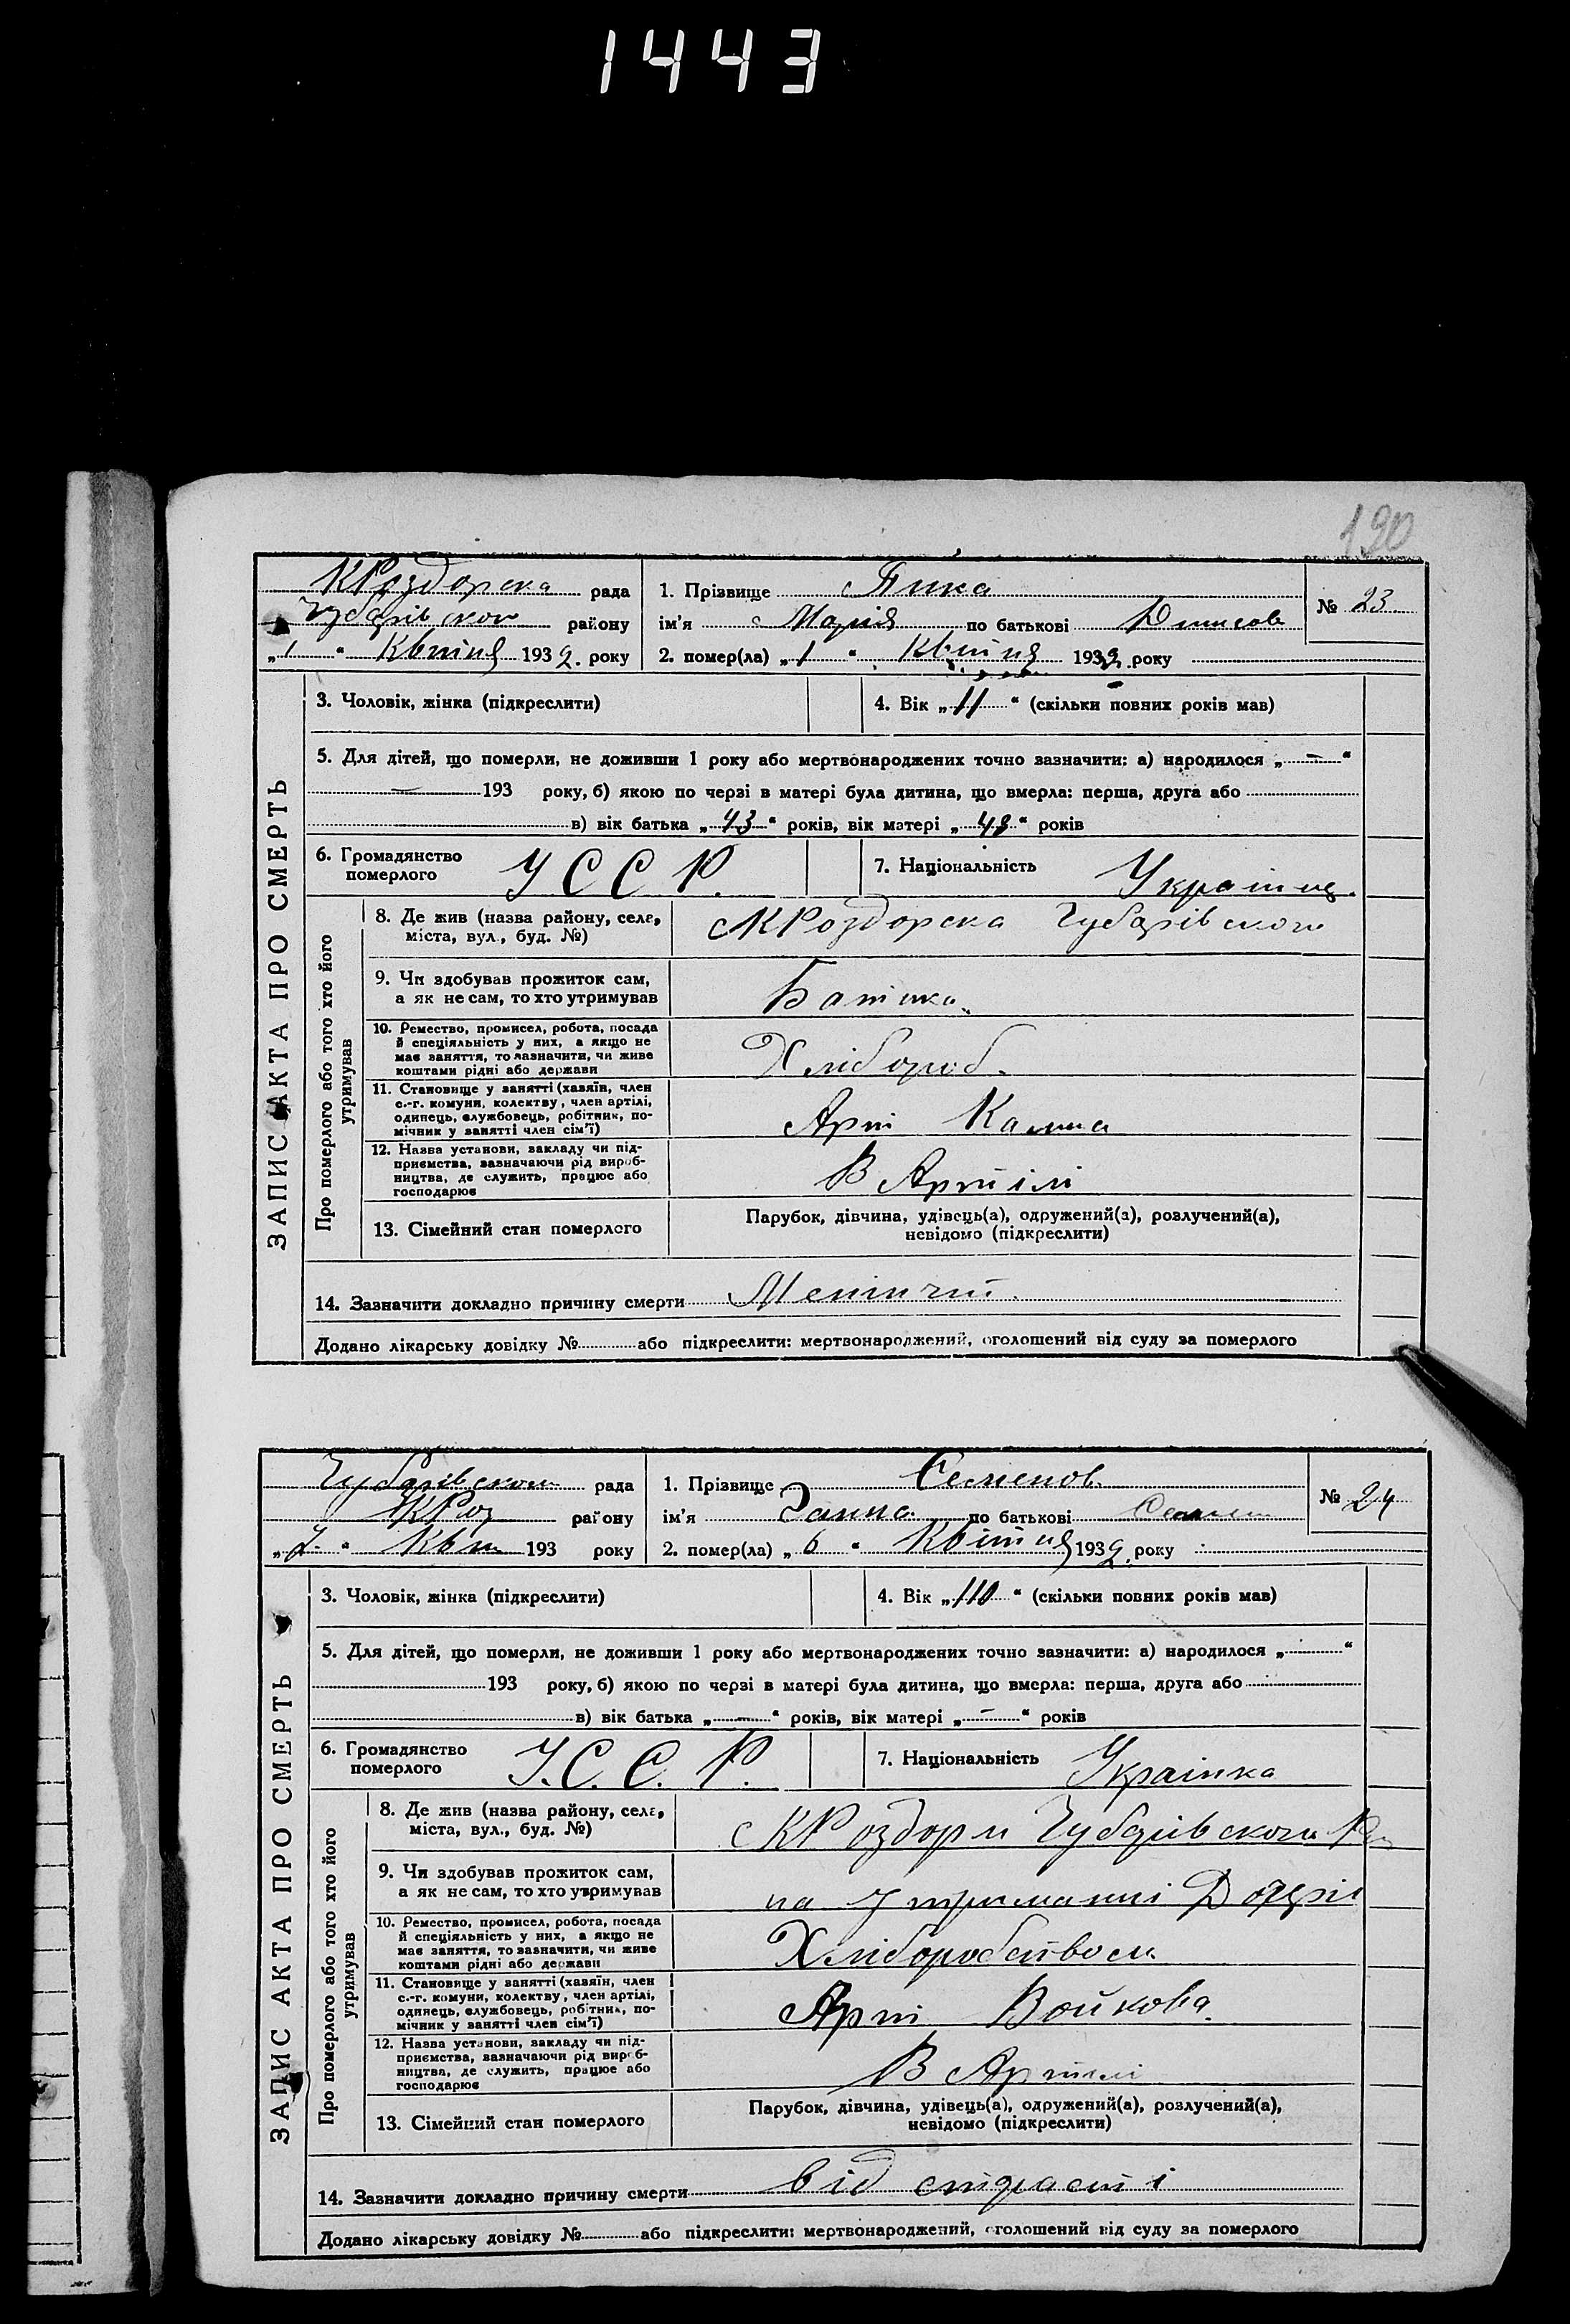 1443
190
КРоздорска рада
Чубарівског району
„1“ Квітня 1932. року
1. Прізвище Пика
ім'я Марія по батькові Динисов
2. помер(ла) „1“ Квітня 1932. року
№ 23
ЗАПИС АКТА ПРО СМЕРТЬ
3. Чоловік, жінка (підкреслити)
4. Вік „11“ (скільки повних років мав)
5. Для дітей, що померли, не доживши 1 року або мертвонароджених точно зазначити: а) народилося „—“
— 193 року, б) якою по черзі в матері була дитина, що вмерла: перша, друга або
в) вік батька „43“ років, вік матері „43“ років
6. Громадянство
померлого
УССР.
7. Національність Українц.
Про померлого або того хто його
утримував
8. Де жив (назва району, села,
міста, вул., буд. №)
с КРоздорска Чубарівского
9. Чи здобував прожиток сам,
а як не сам, то хто утримував
Батька.
10. Ремество, промисел, робота, посада
й спеціяльність у них, а якщо не
має заняття, то зазначити, чи живе
коштами рідні або держави
Хлібороб.
11. Становище у занятті (хазяїн, член
с.-г. комуни, колектву, член артілі,
одинець, службовець, робітник, по-
мічник у занятті член сім'ї)
Арт
12. Назва установи, закладу чи під-
приємства, зазначаючи рід вироб-
ництва, де служить, працює або
господарює
В Артілі
13. Сімейний стан померлого
Парубок, дівчина, удівець(а), одружений(а), розлучений(а),
невідомо (підкреслити)
14. Зазначити докладно причину смерти Менінгіт.
Додано лікарську довідку № або підкреслити: мертвонароджений, оголошений від суду за померлого
Чубарівском рада
КРоз району
„7“ Квіт 193 року
1. Прізвище Семенов.
ім'я Ганна по батькові Семен
2. помер(ла) „6“ Квітня 1932. року
№ 24
ЗАПИС АКТА ПРО СМЕРТЬ
3. Чоловік, жінка (підкреслити)
4. Вік „110“ (скільки повних років мав)
5. Для дітей, що померли, не доживши 1 року або мертвонароджених точно зазначити: а) народилося „ “
193 року, б) якою по черзі в матері була дитина, що вмерла: перша, друга або
в) вік батька „—“ років, вік матері „—“ років
6. Громадянство
померлого
У.С.С.Р.
7. Національність Українка
Про померлого або того хто його
утримував
8. Де жив (назва району, села,
міста, вул., буд. №)
с КРоздори Чубарівского Рай
9. Чи здобував прожиток сам,
а як не сам, то хто утримував
на утриманні
10. Ремество, промисел, робота, посада
й спеціяльність у них, а якщо не
має заняття, то зазначити, чи живе
коштами рідні або держави
Хліборобством
11. Становище у занятті (хазяїн, член
с.-г. комуни, колектву, член артілі,
одинець, службовець, робітник, по-
мічник у занятті член сім'ї)
Арт Войкова.
12. Назва установи, закладу чи під-
приємства, зазначаючи рід вироб-
ництва, де служить, працює або
господарює
В Артілі
13. Сімейний стан померлого
Парубок, дівчина, удівець(а), одружений(а), розлучений(а),
невідомо (підкреслити)
14. Зазначити докладно причину смерти від старості
Додано лікарську довідку № або підкреслити: мертвонароджений, оголошений від суду за померлого